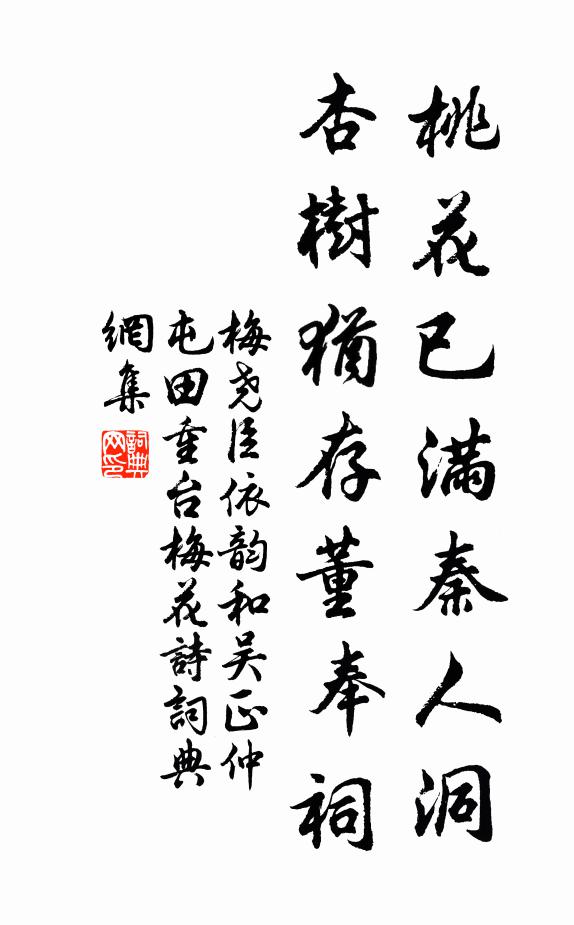 桃花已滿秦人洞
杏樹猶存董奉祠
梅尧臣依韵和吴正仲
屯田重台梅花詩詞典
網集
詞典
网印